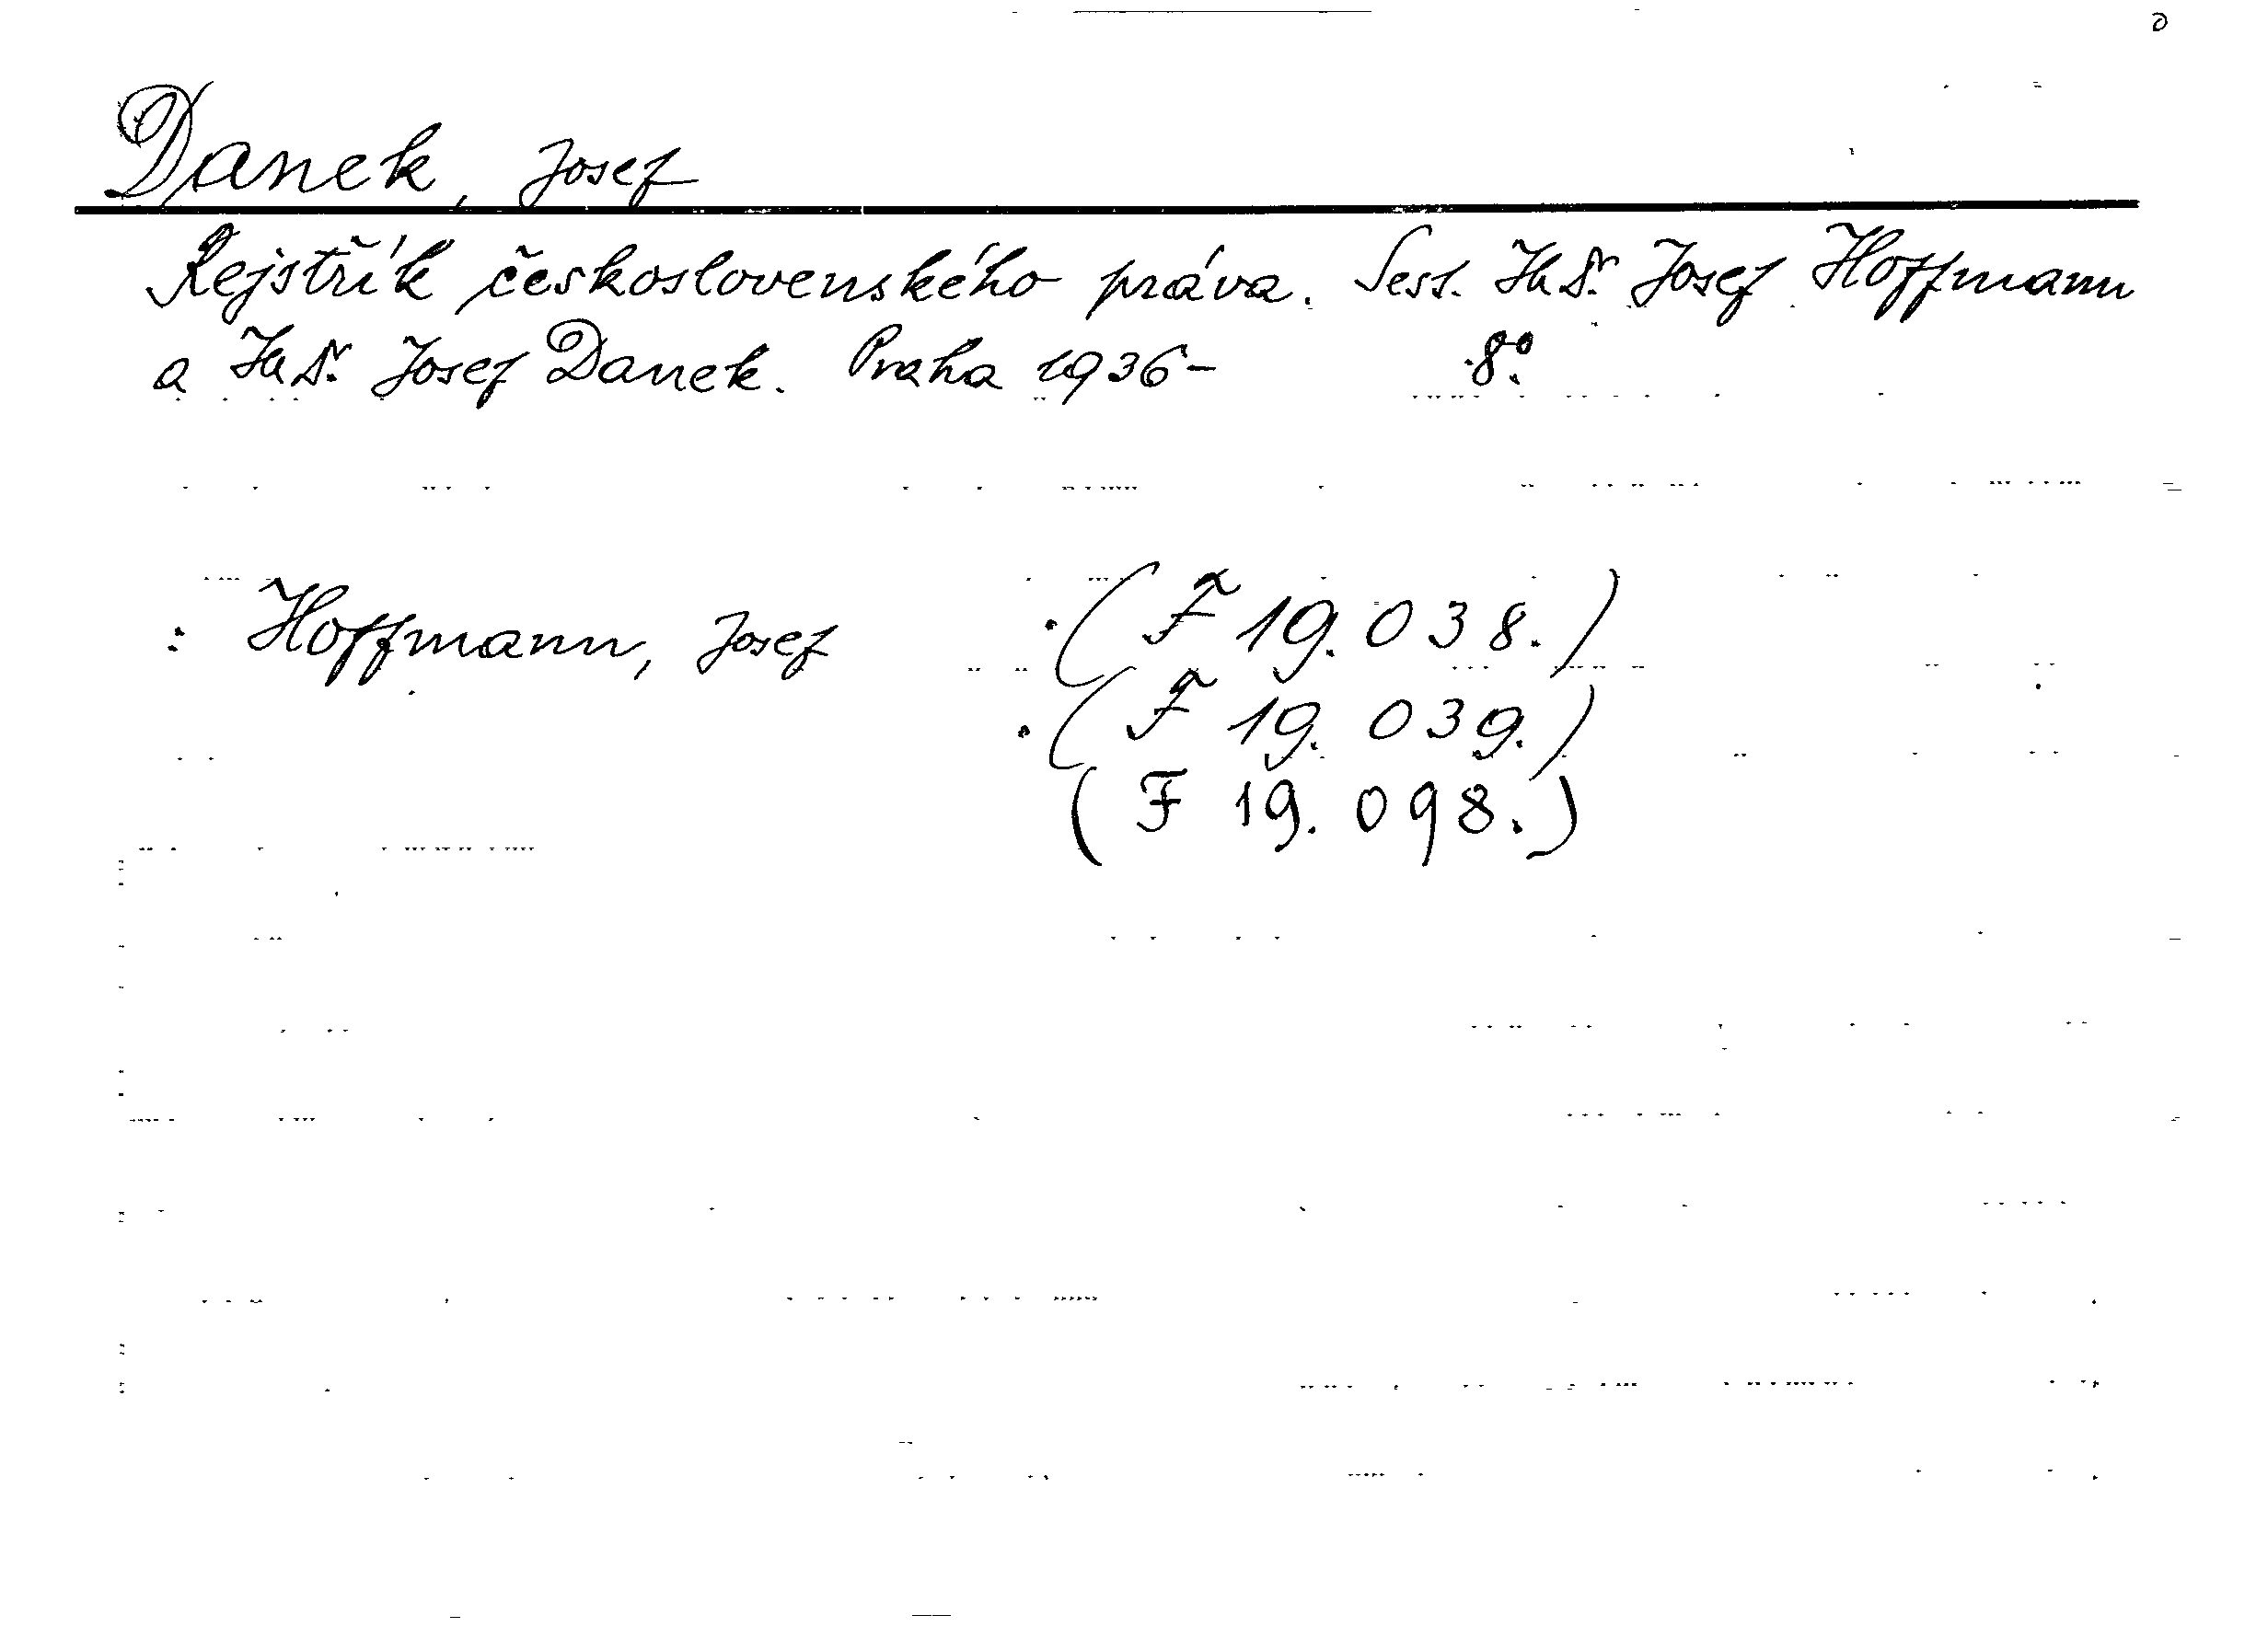 Danek, Josef
Rejstřík československého práva. Sest. JUDr. Josef Hoffmann
a JUDr. Josef Danek. Praha 1936- 8°.
: Hoffmann, Josef (F 19.038.)
(F 19.039.)
(F 19.098.)